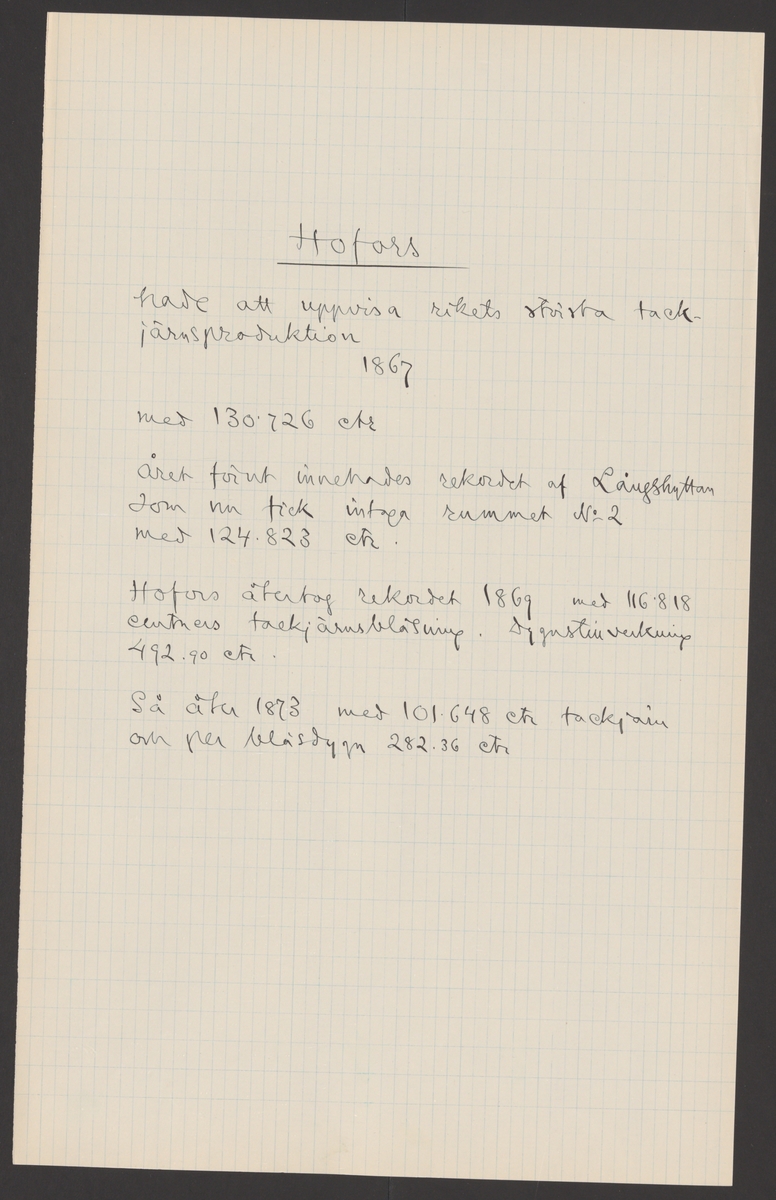 Hofors
hade att uppvisa rikets största tack-
järnsproduktion
1867
med 130.726 ctr
Året förut innehades rekordet af Långshyttan
som nu fick intaga rummet No 2
med 124.823 ctr.
Hofors återtog rekordet 1869 med 116.818
centners tackjärnsblåsning. Dygnstillverkning
492.90 ctr.
Så åter 1873 med 101.648 ctr tackjärn
och per blåsdygn 282.36 ctr